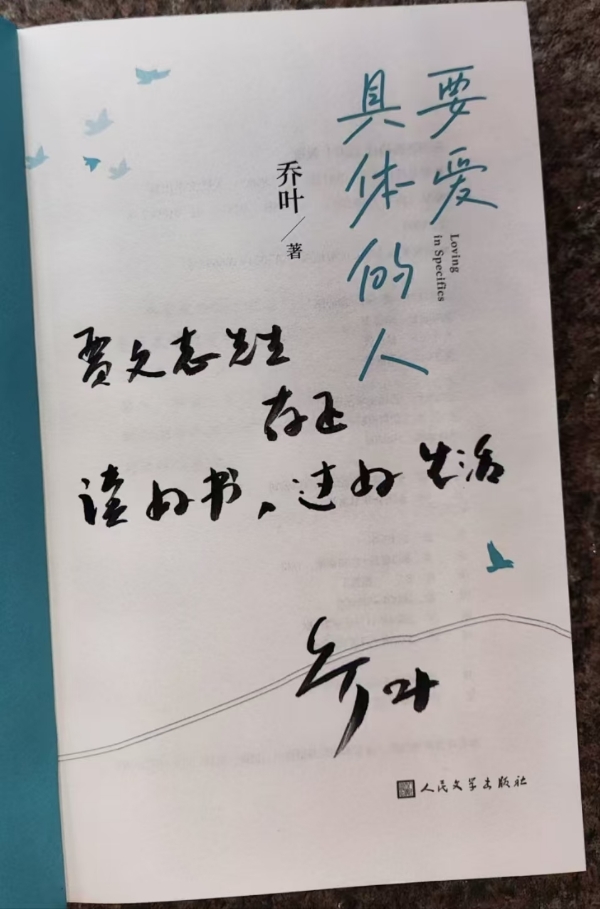 要爱
具体的人
Loving
in Specifics
乔叶/著
贾文志先生
存正
读好书,过好生活
乔叶
人民文学出版社